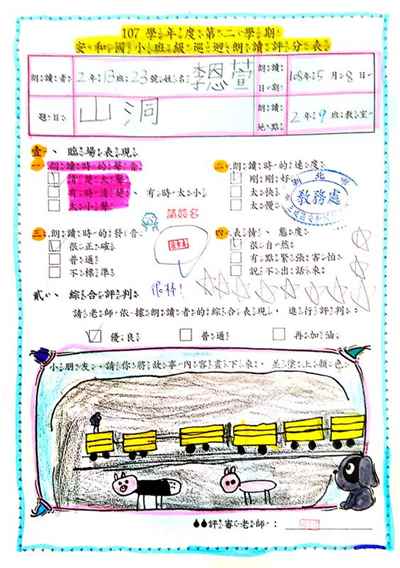 107學年度第二學期
安和國小班級巡迴朗讀評分表
朗讀者 2年13班23號姓名:李恩萱 朗讀日期 108年5月8日
題目 山洞 朗讀地點 2年9班教室
壹、臨場表現
一、朗讀時的聲音
清楚大聲
有時清楚 有時太小
太小聲
二、朗讀時的速度
剛剛好
太快
太慢
教務處
請簽名
三、朗讀時的發音
很正確
普通
不標準
四、表情、態度
很自然
有點緊張害怕
說不出話來
很棒!
貳、綜合評判
請老師依據朗讀者的綜合表現,進行評判
優良 普通 再加油
小朋友,請你將故事內容畫下來,並塗上顏色
評審老師: